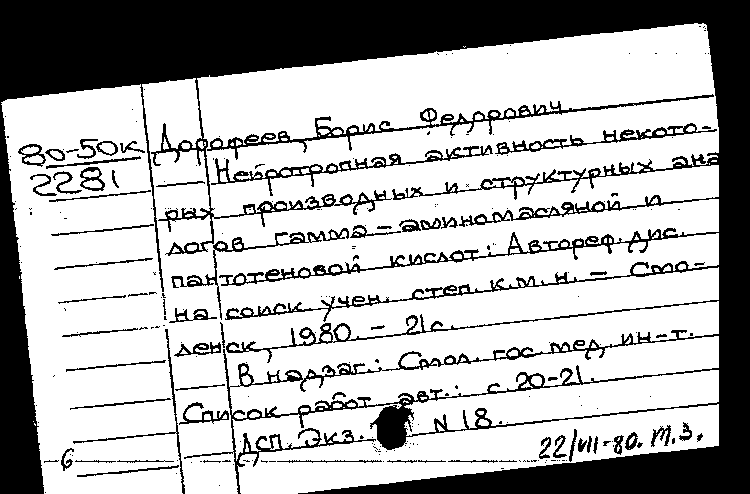 80-50к
2281
Дорофеев, Борис Федорович.
Нейротропная активность некото-
рых производных и структурных ана
логов гамма-аминомасляной и
пантотеновой кислот: Автореф. дис.
на соиск. учен. степ. к.м.н. - Смо-
ленск, 1980. - 21с.
В надзаг.: Смол. гос. мед. ин-т.
Список работ авт.: с. 20-21.
Дсп. Экз. N 18.
б
22/VII-80. М.З.